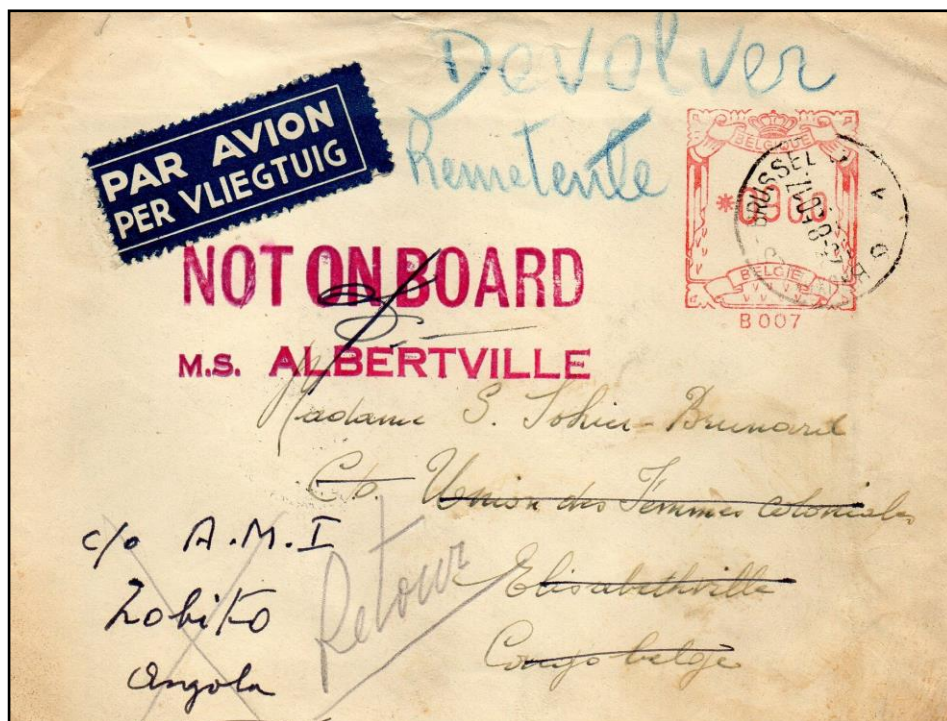 Devolver
Remetente
PAR AVION
PER VLIEGTUIG
BELGIQUE
*0900
BELGIË
B007
BRUSSEL
NOT ON BOARD
M.S. ALBERTVILLE
Madame S. Sohier-Brunard
C/o. Union des Femmes Coloniales
Elisabethville
Congo belge
c/o A.M.I
Lobito
Angola
Retour